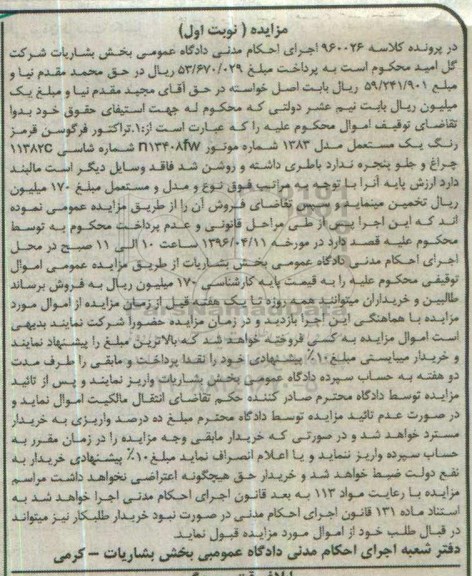 مزایده ( نوبت اول)
در پرونده کلاسه ۹۶۰۰۲۶ اجرای احکام مدنی دادگاه عمومی بخش بشاریات شرکت
گل امید محکوم است به پرداخت مبلغ ۵۳/۶۷۰/۰۲۹ ریال در حق محمد مقدم نیا و
مبلغ ۵۹/۲۴۱/۹۰۱ ریال بابت اصل خواسته در حق آقای مجید مقدم نیا و مبلغ یک
میلیون ریال بابت نیم عشر دولتی که محکوم له جهت استیفای حقوق خود بدوا
تقاضای توقیف اموال محکوم علیه را که عبارت است از:۱.تراکتور فرگوسن قرمز
رنگ یک مستعمل مدل ۱۳۸۳ شماره موتور ۱۳۴۰۸fw شماره شاسی ۱۱۳۸۲C
چراغ و جلو پنجره ندارد باطری داشته و روشن شد فاقد وسایل دیگر است مالبند
دارد ارزش پایه آنرا با توجه به مراتب فوق نوع و مدل و مستعمل مبلغ ۱۷۰ میلیون
ریال تخمین مینماید و سپس تقاضای فروش آن را از طریق مزایده عمومی نموده
اند که این اجرا پس از طی مراحل قانونی و عدم پرداخت محکوم به توسط
محکوم علیه قصد دارد در مورخه ۱۳۹۶/۰۴/۱۱ ساعت ۱۰ الی ۱۱ صبح در محل
اجرای احکام مدنی دادگاه عمومی بخش بشاریات از طریق مزایده عمومی اموال
توقیفی محکوم علیه را به قیمت پایه کارشناسی ۱۷۰ میلیون ریال به فروش برساند
طالبین و خریداران میتوانند همه روزه تا یک هفته قبل از زمان مزایده از اموال مورد
مزایده با هماهنگی این اجرا بازدید و در زمان مزایده حضوراً شرکت نمایند بدیهی
است اموال مزایده به کسی فروخته خواهد شد که بالاترین مبلغ را پیشنهاد نمایند
و خریدار میبایستی مبلغ ۱۰٪ پیشنهادی خود را نقدا پرداخت و مابقی را ظرف مدت
دو هفته به حساب سپرده دادگاه عمومی بخش بشاریات واریز نمایند و پس از تائید
مزایده توسط دادگاه محترم صادر کننده حکم تقاضای انتقال مالکیت اموال نماید و
در صورت عدم تائید مزایده توسط دادگاه محترم مبلغ ده درصد واریزی به خریدار
مسترد خواهد شد و در صورتی که خریدار مابقی وجه مزایده را در زمان مقرر به
حساب سپرده واریز ننماید و یا اعلام انصراف نماید مبلغ ۱۰٪ پیشنهادی خریدار به
نفع دولت ضبط خواهد شد و خریدار حق هیچگونه اعتراضی نخواهد داشت مراسم
مزایده با رعایت مواد ۱۱۳ به بعد قانون اجرای احکام مدنی اجرا خواهد شد به
استناد ماده ۱۳۱ قانون اجرای احکام مدنی در صورت نبود خریدار طلبکار نیز میتواند
در قبال طلب خود از اموال مورد مزایده قبول نماید.
دفتر شعبه اجرای احکام مدنی دادگاه عمومیی بخش بشاریات – کرمی